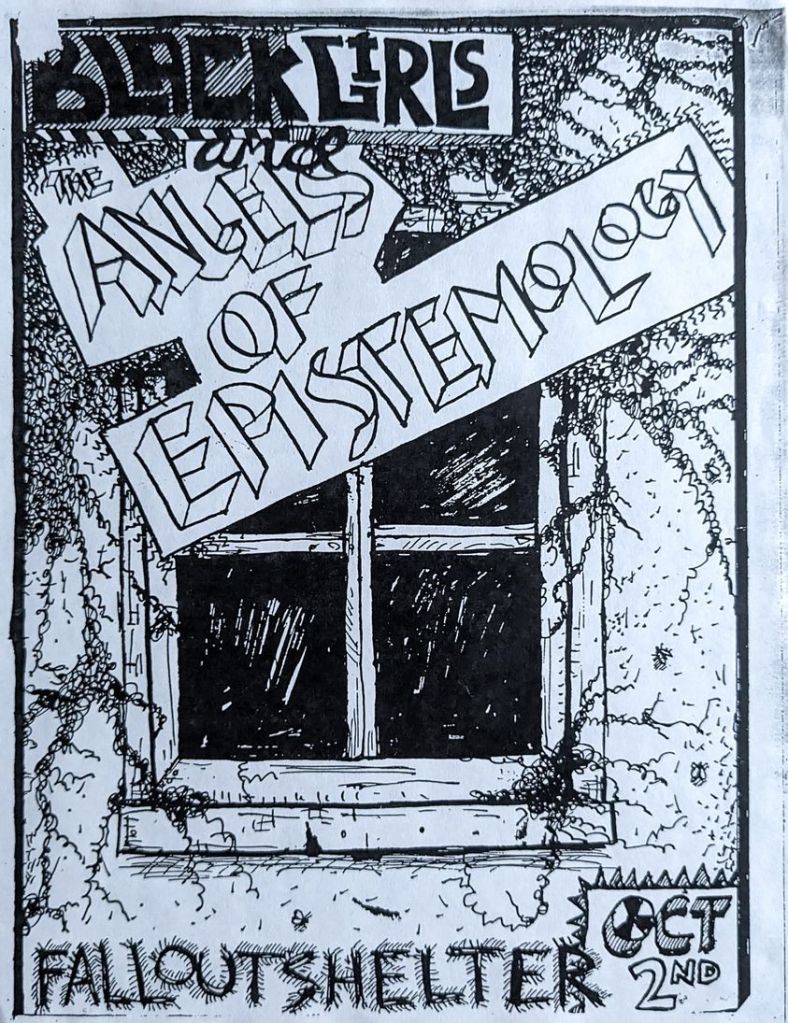 BLACK GIRLS
and
THE
ANGELS
OF
EPISTEMOLOGY
FALLOUT SHELTER
OCT
2ND